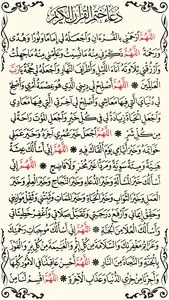 دعاء ختم القرآن الكريم
اللهم ارحمني بالقرءان واجعله لي إماما ونورا وهدى
ورحمة اللهم ذكرني منه ما نسيت وعلمني منه ما جهلت
وارزقني تلاوته آناء الليل وأطراف النهار واجعله لي حجة يا رب
العالمين اللهم أصلح لي ديني الذي هو عصمة أمري وأصلح
لي دنياي التي فيها معاشي وأصلح لي آخرتي التي فيها معادي
واجعل الحياة زيادة لي في كل خير واجعل الموت راحة لي
من كل شر اللهم اجعل خير عمري آخره وخير عملي
خواتمه وخير أيامي يوم ألقاك فيه اللهم إني أسألك عيشة
هنية وميتة سوية ومردا غير مخز ولا فاضح اللهم إني
أسألك خير المسألة وخير الدعاء وخير النجاح وخير العلم وخير
العمل وخير الثواب وخير الحياة وخير الممات وثبتني وثقل موازيني
وحقق إيماني وارفع درجتي وتقبل صلاتي واغفر خطيئاتي
وأسألك العلا من الجنة اللهم إني أسألك موجبات رحمتك
وعزائم مغفرتك والسلامة من كل إثم والغنيمة من كل بر والفوز
بالجنة والنجاة من النار اللهم أحسن عاقبتنا في الأمور كلها
وأجرنا من خزي الدنيا وعذاب الآخرة اللهم اقسم لنا من